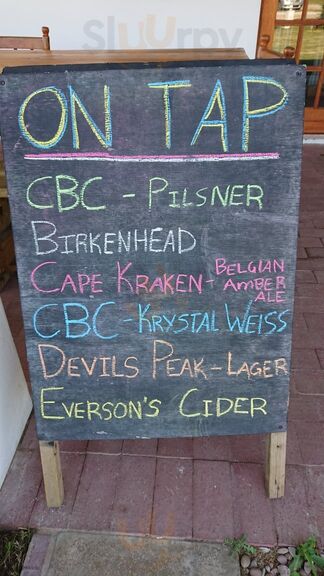 Sluurpy
ON TAP
CBC - PILSNER
BIRKENHEAD
CAPE KRAKEN - BELGIAN
AMBER
ALE
CBC - KRYSTAL WEISS
DEVILS PEAK - LAGER
EVERSON'S CIDER